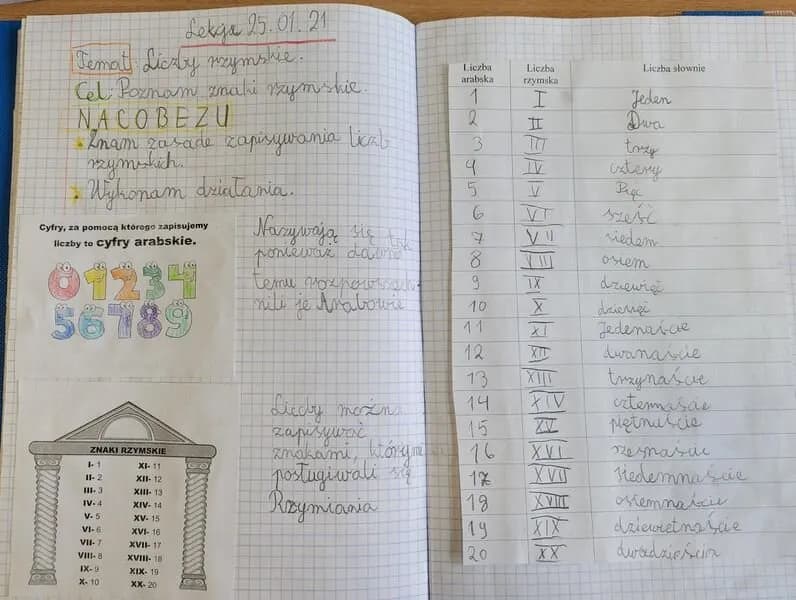 Lekcja 25.01.21
Temat: Liczby rzymskie.
Cel: Poznam znaki rzymskie.
NACOBEZU
Znam zasadę zapisywania liczb
rzymskich.
Wykonam działania.
Cyfry, za pomocą którego zapisujemy
liczby to cyfry arabskie.
0 1 2 3 4
5 6 7 8 9
Nazywają się tak
ponieważ dawno
temu rozpowszech-
nili je Arabowie
ZNAKI RZYMSKIE
I- 1 XI- 11
II- 2 XII- 12
III- 3 XIII- 13
IV- 4 XIV- 14
V- 5 XV- 15
VI- 6 XVI- 16
VII- 7 XVII- 17
VIII- 8 XVIII- 18
IX- 9 XIX- 19
X- 10 XX- 20
Liczby można
zapisywać
znakami, którymi
posługiwali się
Rzymiania
Liczba arabska Liczba rzymska Liczba słownie
1 I Jeden
2 II Dwa
3 III trzy
4 IV cztery
5 V Pięć
6 VI sześć
7 VII siedem
8 VIII osiem
9 IX dziewięć
10 X dziesięć
11 XI Jedenaście
12 XII dwanaście
13 XIII trzynaście
14 XIV czternaście
15 XV piętnuście
16 XVI
17 XVII siedemnaście
18 XVIII osiemnaście
19 XIX dziewiętnaście
20 XX dwadzieścia